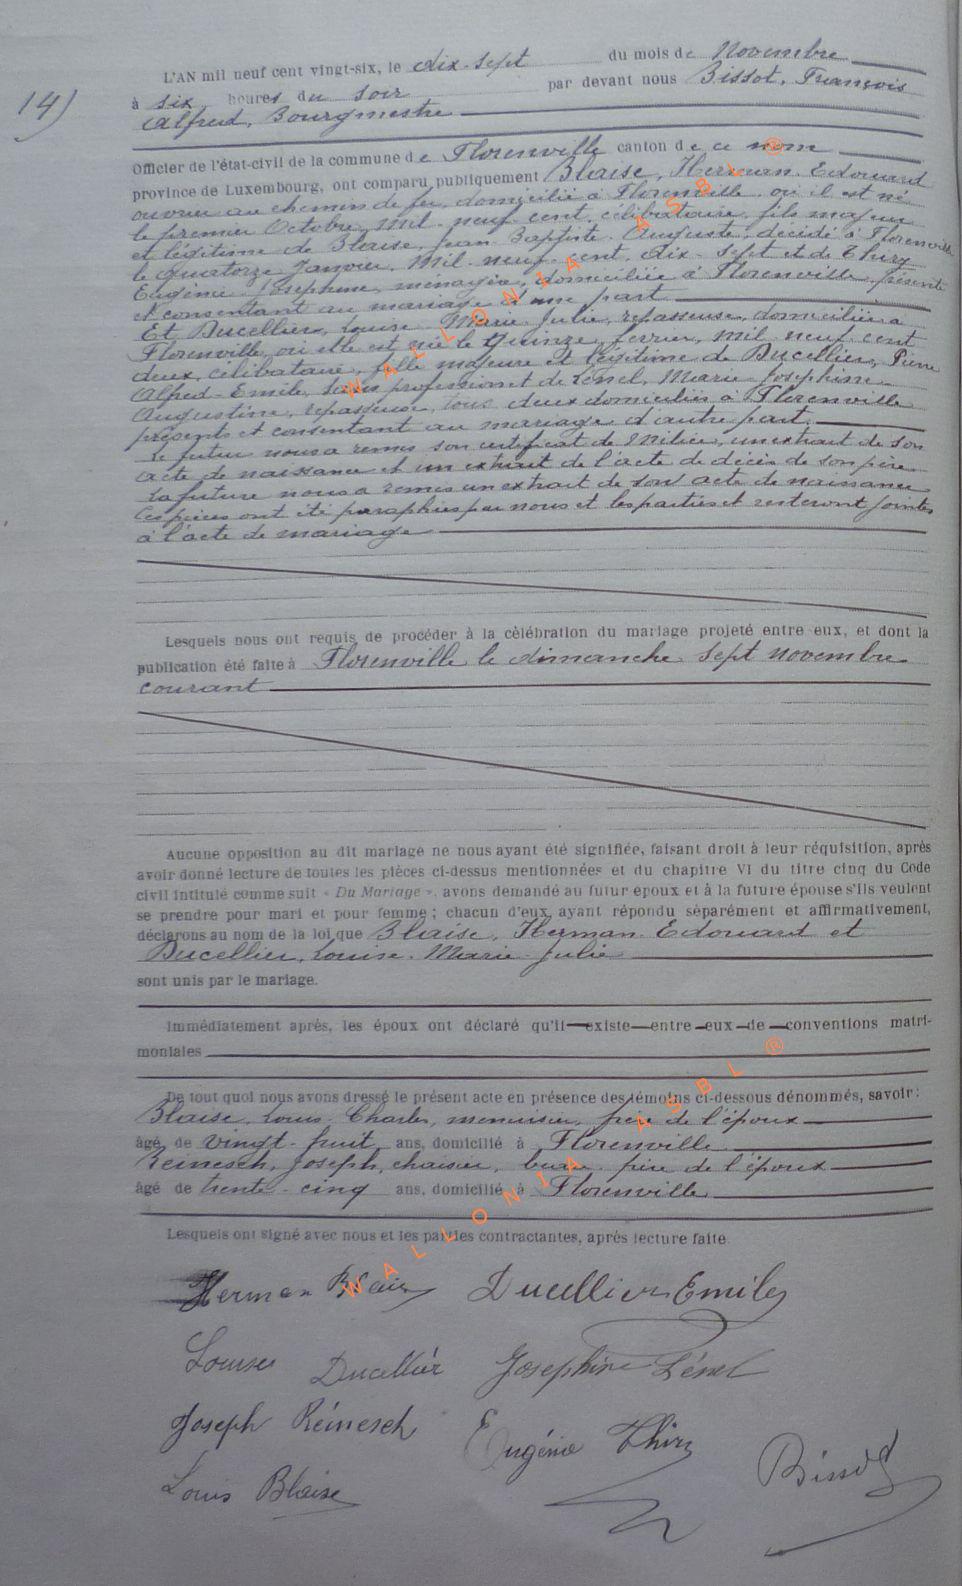 14)
L'AN mil neuf cent vingt-six, le dix-sept du mois de Novembre
à six heures du soir par devant nous Bissot, François
Alfred, Bourgmestre
Officier de l'état-civil de la commune de Florenville canton de ce nom
province de Luxembourg, ont comparu publiquement Blaise, Herman Edouard
ouvrier au chemin de fer, domicilié à Florenville, où il est né
le premier Octobre, Mil neuf cent, célibataire, fils majeur
et légitime de Blaise, Jean Baptiste Auguste, décédé à Florenville
le quatorze Janvier, Mil neuf cent dix-sept et de Thiry
Eugénie Josephine, ménagère, domiciliée à Florenville, présente
et consentant au mariage d'une part
Et Ducellier, Louise Marie Julie, repasseuse, domiciliée à
Florenville, où elle est née le quinze février, Mil neuf cent
deux, célibataire, fille majeure et légitime de Ducellier, Pierre
Alfred-Emile, sans profession et de Lénel, Marie Josephine
Augustine, repasseuse, tous deux domiciliés à Florenville
présents et consentant au mariage d'autre part.
Le futur nous a remis son certificat de Milice, un extrait de son
acte de naissance et un extrait de l'acte de décès de son père
La future nous a remis un extrait de son acte de naissance
Ces pièces ont été paraphées par nous et les parties et resteront jointes
à l'acte de mariage
Lesquels nous ont requis de procéder à la célébration du mariage projeté entre eux, et dont la
publication été faite à Florenville le dimanche sept novembre
courant
Aucune opposition au dit mariage ne nous ayant été signifiée, faisant droit à leur réquisition, après
avoir donné lecture de toutes les pièces ci-dessus mentionnées et du chapitre VI du titre cinq du Code
civil intitulé comme suit « Du Mariage », avons demandé au futur époux et à la future épouse s'ils veulent
se prendre pour mari et pour femme ; chacun d'eux ayant répondu séparément et affirmativement,
déclarons au nom de la loi que Blaise, Herman Edouard et
Ducellier, Louise Marie Julie
sont unis par le mariage.
Immédiatement après, les époux ont déclaré qu'il existe entre eux de conventions matri-
moniales
De tout quoi nous avons dressé le présent acte en présence des témoins ci-dessous dénommés, savoir :
Blaise, Louis Charles, menuisier, frère de l'époux
âgé de vingt-huit ans, domicilié à Florenville
Reinesch, Joseph, chaisier, beau-frère de l'époux
âgé de trente-cinq ans, domicilié à Florenville
Lesquels ont signé avec nous et les parties contractantes, après lecture faite
Herman Blaise Ducellier Emile
Louise Ducellier Josephine Lénel
Joseph Reinesch Eugénie Thiry
Louis Blaise Bissot
WALLONIA ASBL ®
WALLONIA ASBL ®